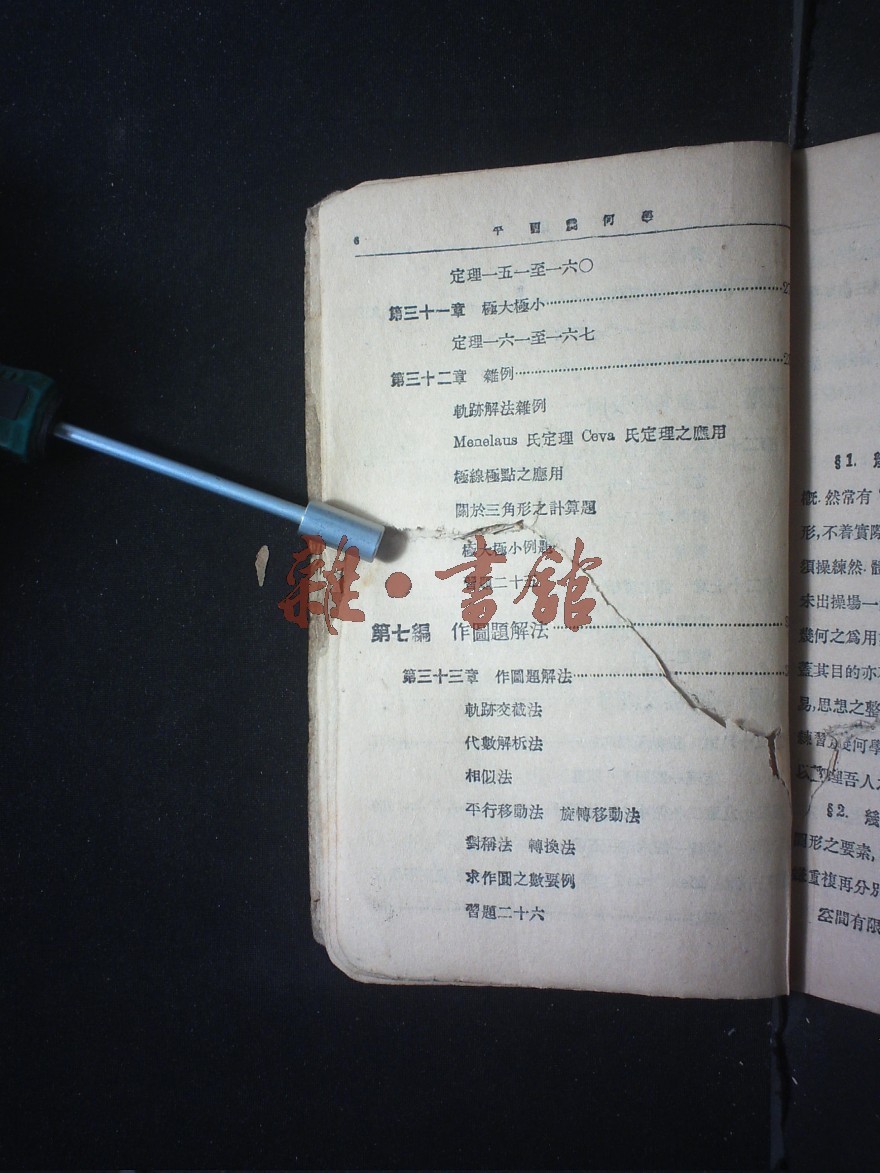 6 平面幾何學
定理一五一至一六〇
第三十一章 極大極小
定理一六一至一六七
第三十二章 雜例
軌跡解法雜例
Menelaus 氏定理 Ceva 氏定理之應用
極線極點之應用
關於三角形之計算題
極大極小例題
習題二十五
雜·書舘
第七編 作圖題解法
第三十三章 作圖題解法
軌跡交截法
代數解析法
相似法
平行移動法 旋轉移動法
對稱法 轉換法
求作圓之數要例
習題二十六
§1. 幾
概.然常有
形,不着實際
須操練然.體
未出操場一
幾何之爲用
蓋其目的亦
易,思想之整
練習幾何學
理吾人
§2. 幾
形之要素,
重複再分別
空間有限